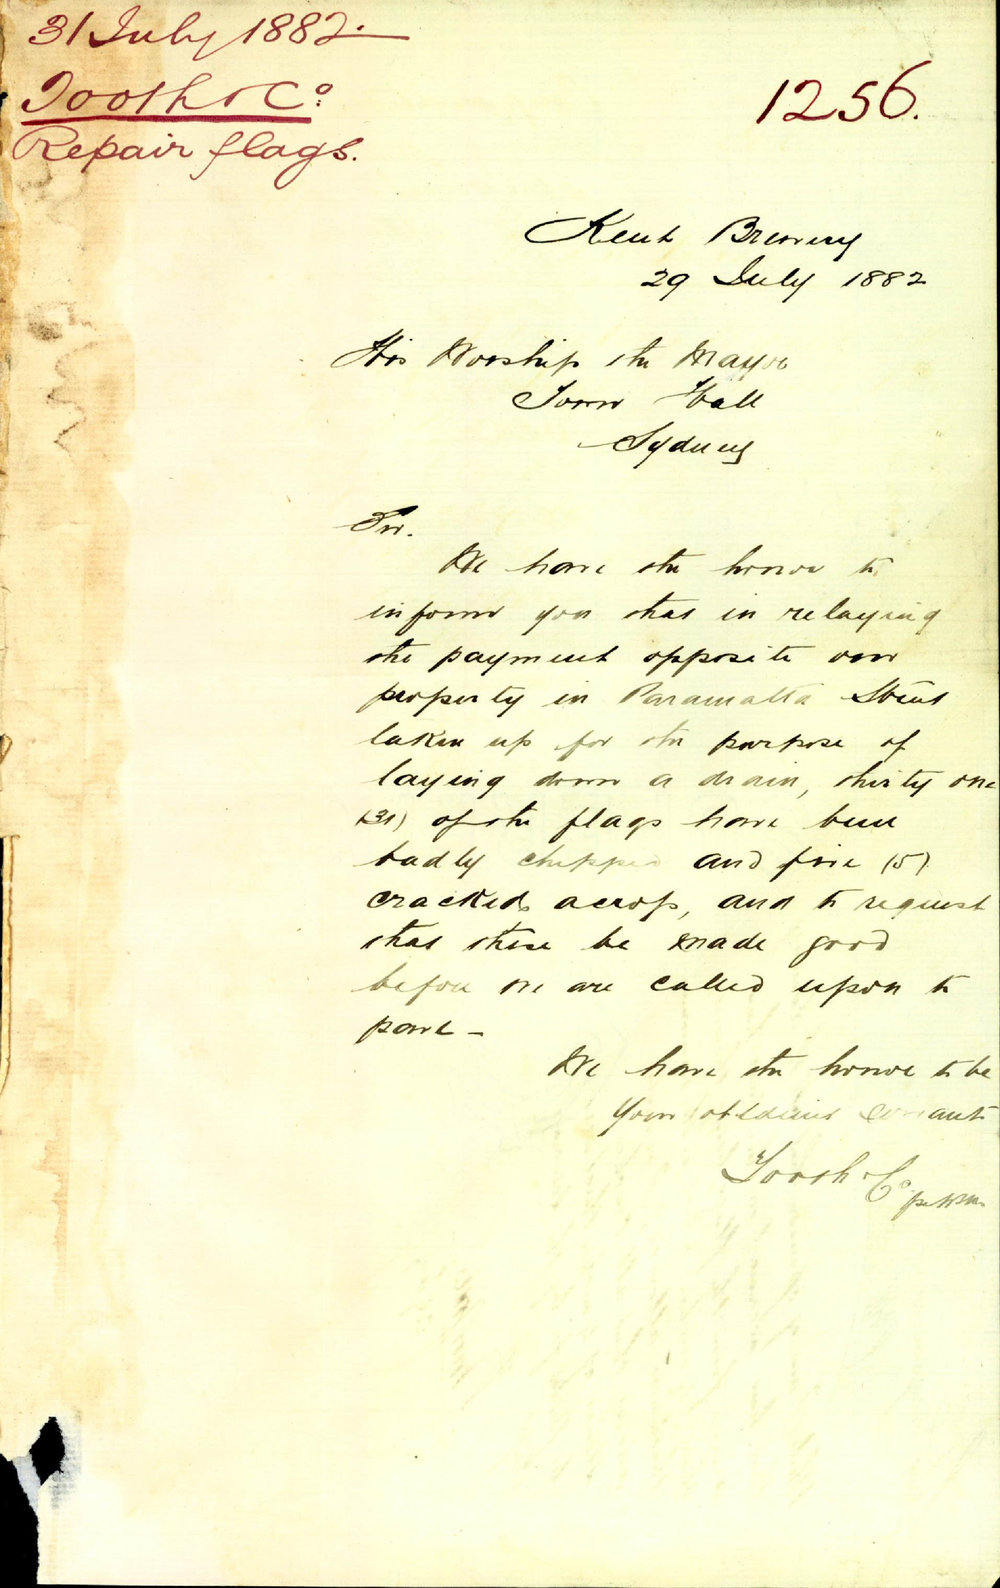 31 July 1882.
Tooth & Co.
Repair flags.
1256.
Kent Brewery
29 July 1882
His Worship the Mayor
Town Hall
Sydney
Sir.
We have the honor to
inform you that in relaying
the payment opposite our
property in Paramatta Street
taken up for the purpose of
laying down a drain, thirty one
(31) of the flags have been
badly chipped and five (5)
cracked across, and to request
that these be made good
before we are called upon to
pave -
We have the honor to be
Your obedient servants
Tooth & Co